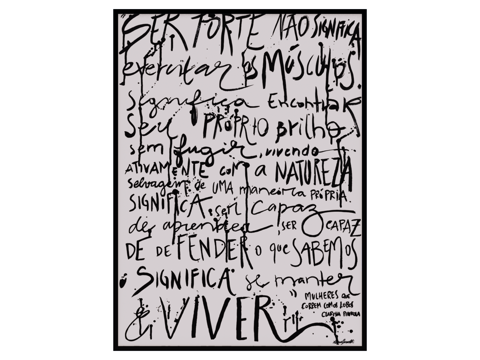 SER FORTE NÃO SIGNIFICA
exercitar os MÚSCULOS.
significa ENCONTRAR
SEU PRÓPRIO Brilho
sem fugir, vivendo
ATIVAMENTE COM a NATUREZA
selvagem de UMA maneira PRÓPRIA.
SIGNIFICA ser capaz
de aprender SER CAPAZ
DE DEFENDER o que SABEMOS
SIGNIFICA se manter
e VIVER
MULHERES que
CORREM com os LOBOS
CLARISSA PINKOLA